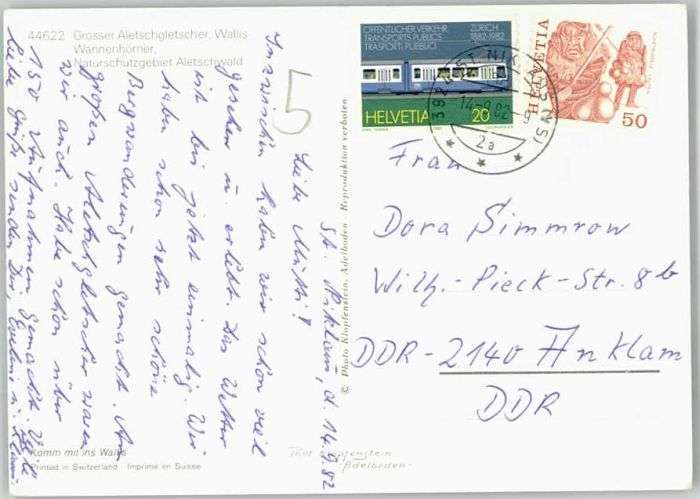 44622 Grosser Aletschgletscher, Wallis
Wannenhörner,
Naturschutzgebiet Aletschwald
5
St. Niklaus, d. 14.9.82
Liebe Mutti!
Inzwischen haben wir schon viel
gesehen u. erlebt. Das Wetter
ist bis jetzt einmalig. Wir
haben schon sehr schöne
Bergwanderungen gemacht. Am
großen Aletschgletscher waren
wir auch. Habe schon über
150 Aufnahmen gemacht.
Liebe Grüße senden Dir,
Komm mit ins Wallis
Printed in Switzerland - Imprimé en Suisse
© Photo Klopfenstein, Adelboden - Reproduktion verboten
Photo Klopfenstein
Adelboden
ÖFFENTLICHER VERKEHR
TRANSPORTS PUBLICS
TRASPORTI PUBBLICI
ZÜRICH
1882-1982
HELVETIA 20
HELVETIA
50
3924 ST. NIKLAUS (VS)
14.-9.82
2a
Frau
Dora Simmrow
Wilh.-Pieck-Str. 8b
DDR-2140 Anklam
DDR